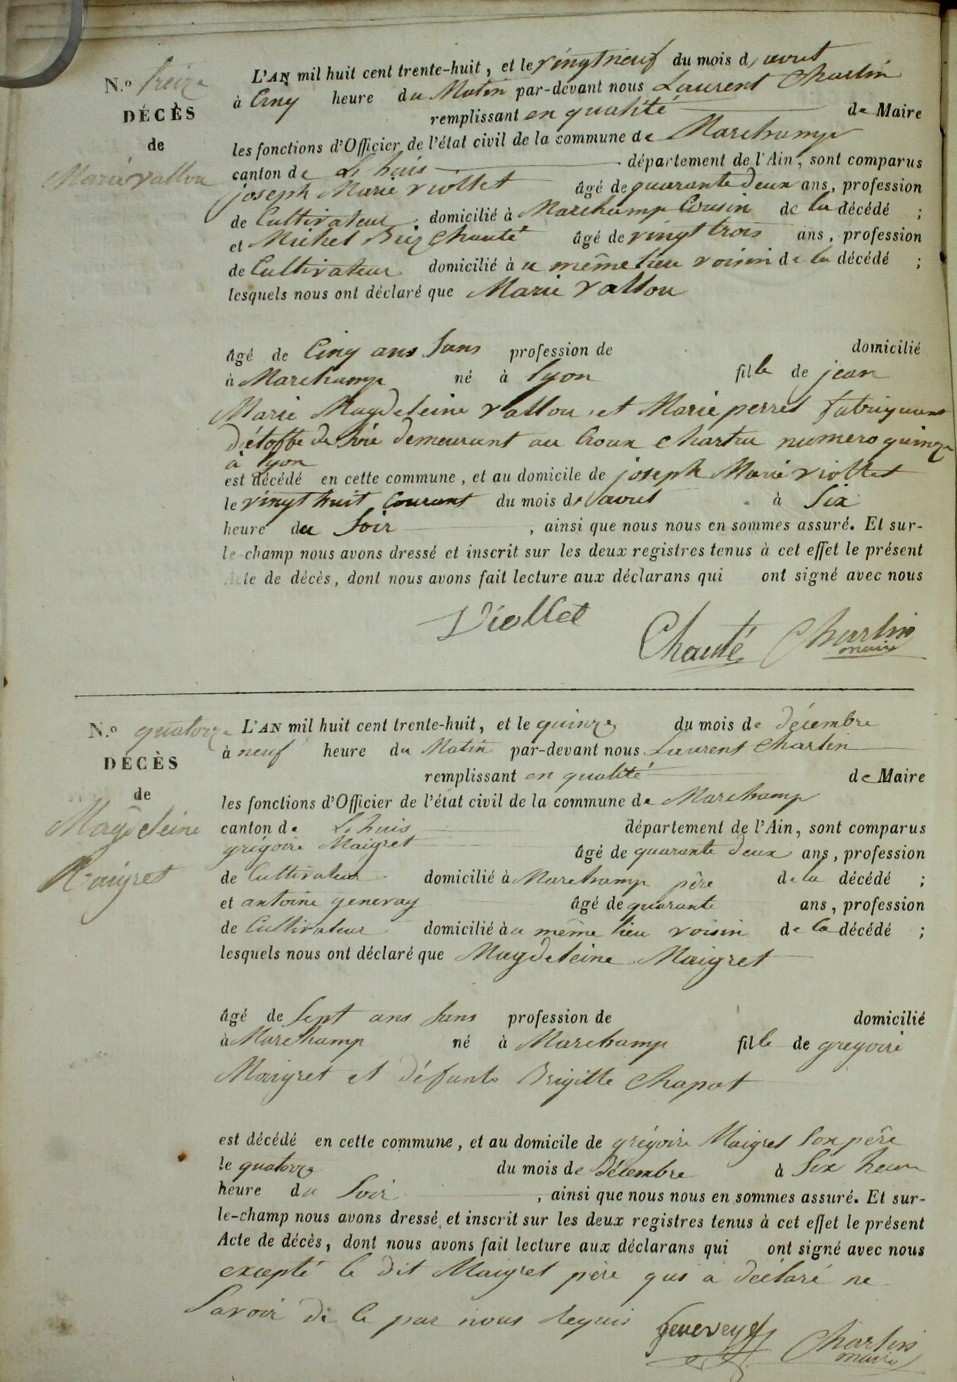 N.º treize
DÉCÈS
de
Marie vallou
L'AN mil huit cent trente-huit, et le vingt neuf du mois d'avout
à Cinq heure du Matin par-devant nous Laurent Charlin
remplissant en qualité de Maire
les fonctions d'Officier de l'état civil de la commune de Marchamp
canton de L'huis département de l'Ain, sont comparus
joseph Marie viollet âgé de quarante deux ans, profession
de Cultivateur domicilié à Marchamp Cousin de la décédé ;
et Michel Chauté âgé de vingt trois ans, profession
de Cultivateur domicilié à u même lieu voisin de la décédé ;
lesquels nous ont déclaré que Marie vallou
âgé de Cinq ans Sans profession de domicilié
à Marchamp né à lyon fille de jean
Marie Magdeleine vallou et Marie perret fabriquant
d'étoffe de soie demeurant au numero quinze
à lyon
est décédé en cette commune, et au domicile de joseph Marie viollet
le vingt huit Courant du mois d'avout à Six
heure du Soir , ainsi que nous nous en sommes assuré. Et sur-
le-champ nous avons dressé et inscrit sur les deux registres tenus à cet effet le présent
Acte de décès, dont nous avons fait lecture aux déclarans qui ont signé avec nous
Viollet Chauté Charlin
maire
N.º quatorze
DÉCÈS
de
Magdeleine
Maigret
L'AN mil huit cent trente-huit, et le quinze du mois de décembre
à neuf heure du Matin par-devant nous Laurent Charlin
remplissant en qualité de Maire
les fonctions d'Officier de l'état civil de la commune de Marchamp
canton de L'huis département de l'Ain, sont comparus
grégoire Maigret âgé de quarante deux ans, profession
de Cultivateur domicilié à Marchamp père de la décédé ;
et antoine genevay âgé de quarante ans, profession
de Cultivateur domicilié à u même lieu voisin de la décédé ;
lesquels nous ont déclaré que Magdeleine Maigret
âgé de Sept ans Sans profession de domicilié
à Marchamp né à Marchamp fille de gregoire
Maigret et défunte Brigitte Chapot
est décédé en cette commune, et au domicile de grégoire Maigret Son père
le quatorze du mois de Décembre à Six heure
heure du Soir , ainsi que nous nous en sommes assuré. Et sur-
le-champ nous avons dressé et inscrit sur les deux registres tenus à cet effet le présent
Acte de décès, dont nous avons fait lecture aux déclarans qui ont signé avec nous
excepté le dit Maigret père qui a déclaré ne
Savoir de ce par nous requis
Genevey Charlin
maire